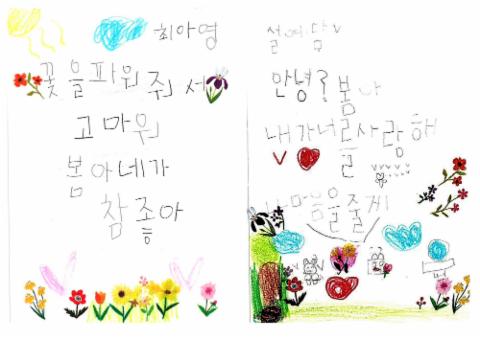 최아영
꽃을파워줘서
고마워
봄아네가
참좋아
설여담
안녕?봄아
내가너를사랑해
마음을줄게